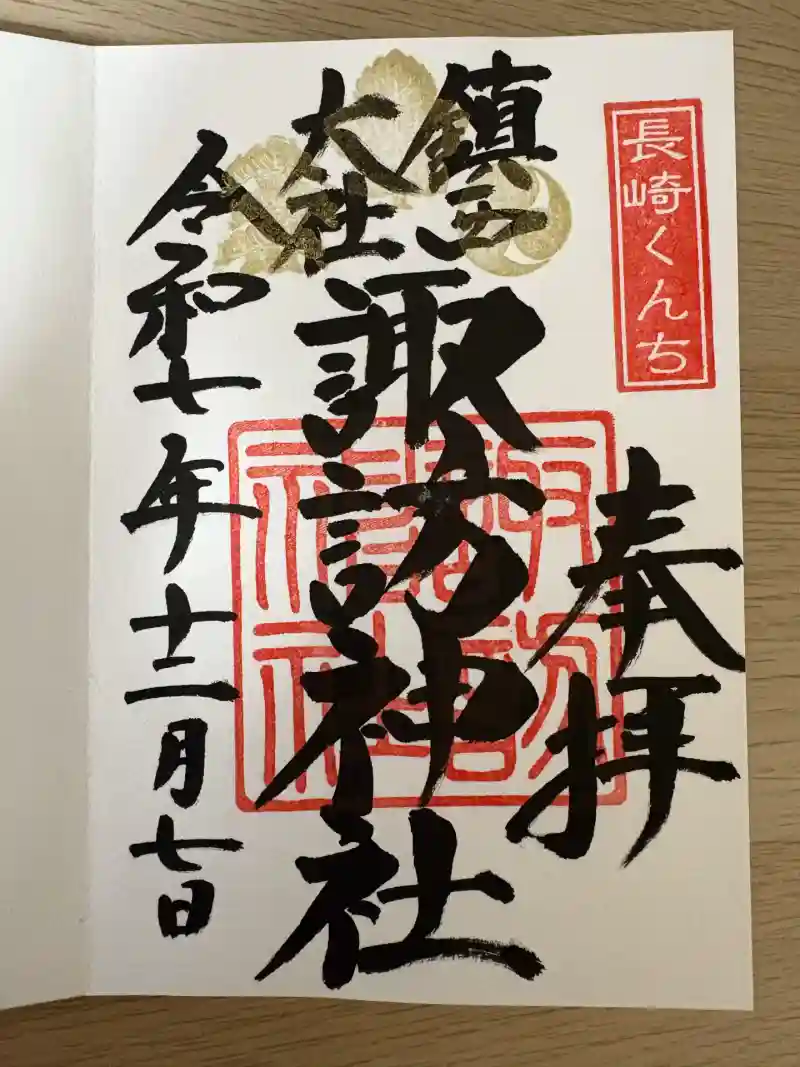 長崎くんち
奉拝
鎮西
大社
諏訪神社
諏訪神社
令和七年十二月七日